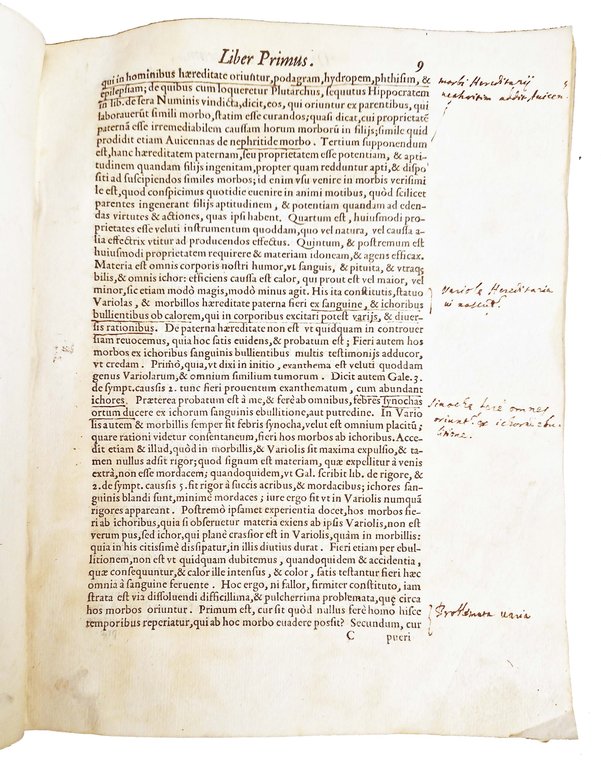 Liber Primus. 9
qui in hominibus hæreditate oriuntur, podagram, hydropem, phthisim, &
epilepsiam; de quibus cum loqueretur Plutarchus, sequutus Hippocratem
in lib. de sera Numinis vindicta, dicit, eos, qui oriuntur ex parentibus, qui
laborauerūt simili morbo, statim esse curandos; quasi dicat, cui proprietatē
paternā esse irremediabilem caussam horum morborū in filijs; simile quid
prodidit etiam Auicennas de nephritide morbo. Tertium supponendum
est, hanc hæreditatem paternam, seu proprietatem esse potentiam, & apti-
tudinem quandam filijs ingenitam, propter quam redduntur apti, & dispo
siti ad suscipiendos similes morbos; id enim vsu venire in morbis verisimi
le est, quod conspicimus quotidie euenire in animi motibus, quòd scilicet
parentes ingenerant filijs aptitudinem, & potentiam quandam ad eden-
das virtutes & actiones, quas ipsi habent. Quartum est, huiusmodi pro-
prietates esse veluti instrumentum quoddam, quo vel natura, vel caussa a-
lia effectrix vtitur ad producendos effectus. Quintum, & postremum est
huiusmodi proprietatem requirere & materiam idoneam, & agens efficax.
Materia est omnis corporis nostri humor, vt sanguis, & pituita, & vtraq;
bilis, & omnis ichor: efficiens caussa est calor, qui prout est vel maior, vel
minor, sic etiam modò magis, modò minus agit. His ita constitutis, statuo
Variolas, & morbillos hæreditate paterna fieri ex sanguine, & ichoribus
bullientibus ob calorem, qui in corporibus excitari potest varijs, & diuer-
sis rationibus. De paterna hæreditate non est vt quidquam in controuer
siam reuocemus, quia hoc satis euidens, & probatum est; Fieri autem hos
morbos ex ichoribus sanguinis bullientibus multis testimonijs adducor,
vt credam. Primò, quia, vt dixi in initio, exanthema est veluti quoddam
genus Variolarum, & omnium similium tumorum. Dicit autem Gale. 3.
de sympt. causis 2. tunc fieri prouentum exanthematum, cum abundant
ichores. Præterea probatum est à me, & ferè ab omnibus, febres synochas
ortum ducere ex ichorum sanguinis ebullitione, aut putredine. In Vario
lis autem & morbillis semper fit febris synocha, velut est omnium placitū;
quare rationi videtur consentaneum, fieri hos morbos ab ichoribus. Acce-
dit etiam & illud, quòd in morbillis, & Variolis sit maxima expulsio, & ta-
men nullus adsit rigor; quod signum est materiam, quæ expellitur à venis
extrà, non esse mordacem; quandoquidem, vt Gal. scribit lib. de rigore, &
2. de sympt. caussis 5. fit rigor à succis acribus, & mordacibus; ichores san-
guinis blandi sunt, minimè mordaces; iure ergo fit vt in Variolis numquā
rigores appareant. Postremò ipsamet experientia docet, hos morbos fie-
ri ab ichoribus, quia si obseruetur materia exiens ab ipsis Variolis, non est
verum pus, sed ichor, qui planè crassior est in Variolis, quàm in morbillis:
quia in his citissimè dissipatur, in illis diutius durat. Fieri etiam per ebul-
litionem, non est vt quidquam dubitemus, quandoquidem & accidentia,
quæ consequuntur, & calor ille intensus, & color, satis testantur fieri hæc
omnia à sanguine feruente. Hoc ergo, ni fallor, firmiter constituto, iam
strata est via dissoluendi difficillima, & pulcherrima problemata, quę circa
hos morbos oriuntur. Primum est, cur sit quòd nullus ferè homo hisce
temporibus reperiatur, qui ab hoc morbo euadere possit? Secundum, cur
C pueri
morbi Hereditarij
nephritim addit Auicen
Variolæ Hereditaria
Sinocha ferè omnes
oriunt. ex ichorū ebu-
litione.
Problemata varia